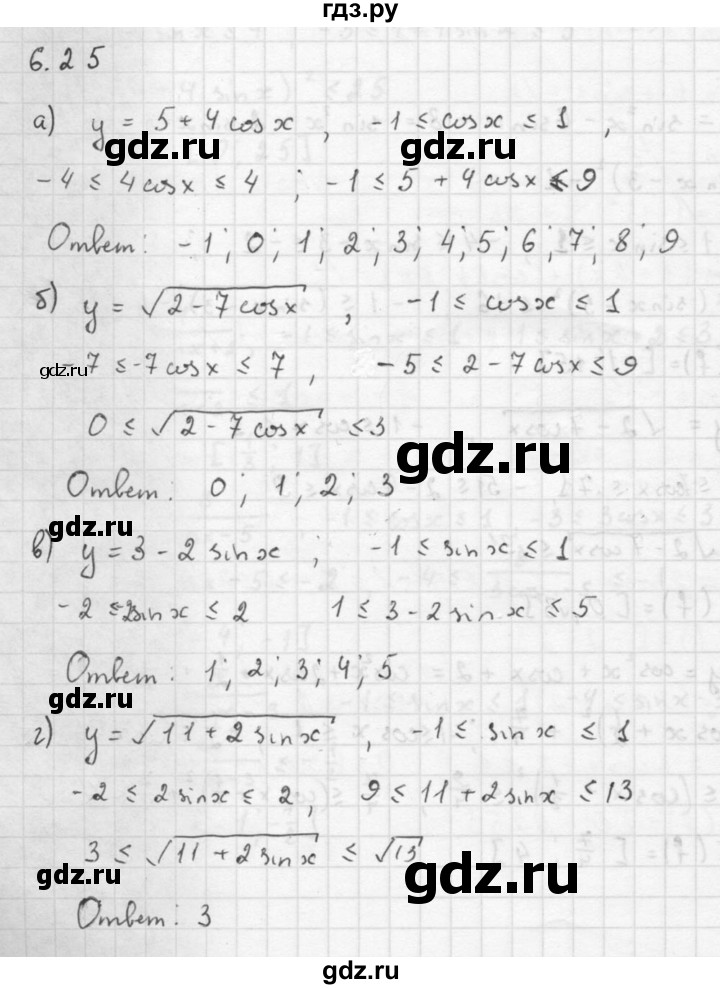 гдз.ру
6.25
а) y = 5 + 4 cos x , -1 ≤ cos x ≤ 1 ,
gdz.ru gdz.ru
-4 ≤ 4 cos x ≤ 4 ; -1 ≤ 5 + 4 cos x ≤ 9
Ответ: -1; 0; 1; 2; 3; 4; 5; 6; 7; 8; 9
gdz.ru
б) y = √(2 - 7 cos x) , -1 ≤ cos x ≤ 1
gdz.ru
-7 ≤ -7 cos x ≤ 7 , -5 ≤ 2 - 7 cos x ≤ 9
0 ≤ √(2 - 7 cos x) ≤ 3
gdz.ru
Ответ: 0; 1; 2; 3
gdz.ru
в) y = 3 - 2 sin x ; -1 ≤ sin x ≤ 1
-2 ≤ -2 sin x ≤ 2 1 ≤ 3 - 2 sin x ≤ 5
Ответ: 1; 2; 3; 4; 5
gdz.ru
г) y = √(11 + 2 sin x) , -1 ≤ sin x ≤ 1
-2 ≤ 2 sin x ≤ 2 , 9 ≤ 11 + 2 sin x ≤ 13
3 ≤ √(11 + 2 sin x) ≤ √13
gdz.ru gdz.ru
Ответ: 3
gdz.ru